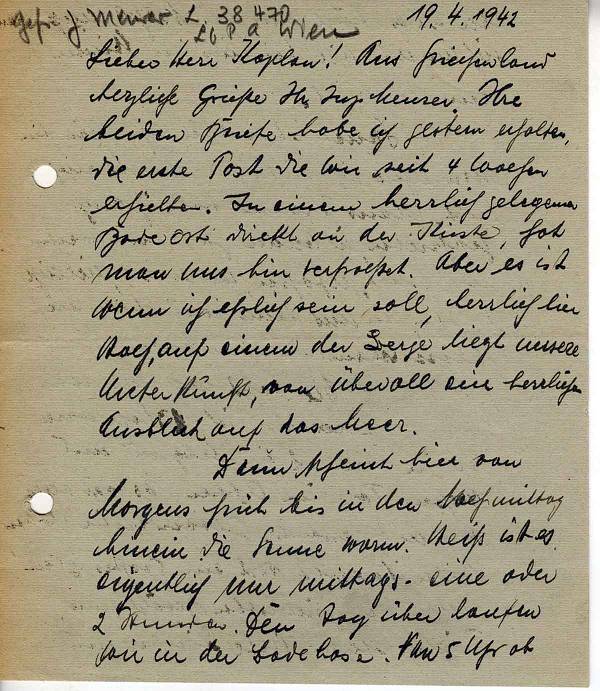 Gefr. J. Meurer L. 38 470
L.G.P.A. Wien
19.4.1942
Lieber Herr Kaplan! Aus Griechenland
herzliche Grüße Ihr Jup Meurer. Ihre
beiden Briefe habe ich gestern erhalten,
die erste Post die wir seit 4 Wochen
erhielten. In einem herrlich gelegenen
Badeort direkt an der Küste, hat
man uns hin verpflanzt. Aber es ist
wenn ich ehrlich sein soll, herrlich hier
Hoch, auf einem der Berge liegt unsere
Unterkunft, von überall ein herrlichen
Ausblick auf das Meer.
Dann scheint hier von
Morgens früh bis in den Nachmittag
hinein die Sonne warm. Heiß ist es
eigentlich nur mittags. eine oder
2 Stunden. Den Tag über laufen
wir in der Badehose. Von 5 Uhr ab